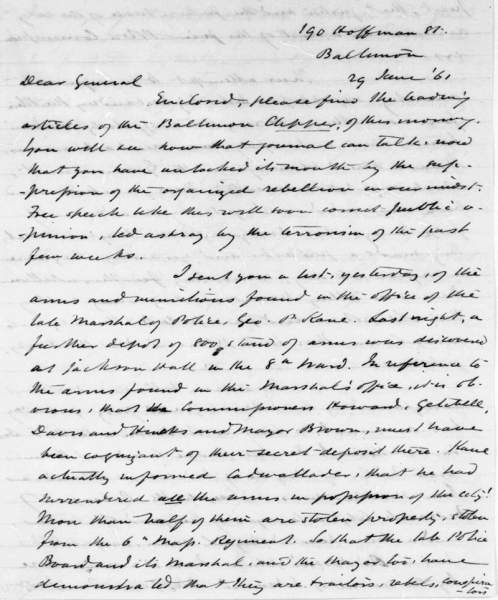 190 Hoffman St.
Baltimore
29 June '61
Dear General
Enclosed, please find the leading
articles of the Baltimore Clipper, of this morning.
You will see how that journal can talk, now
that you have unlocked its mouth by the sup-
-pression of the organized rebellion in our midst.
Free speech like this will soon correct public o-
-pinion, led astray by the terrorism of the past
few weeks.
I sent you a list, yesterday, of the
arms and munitions found in the office of the
late Marshal of Police, Geo. P. Kane. Last night, a
further depot of 800 stand of arms was discovered
at Jackson Hall in the 8th Ward. In reference to
the arms found in the Marshal's office, it is ob-
vious, that the Commissioners Howard, Getchell,
Davis and Hincks and Mayor Brown, must have
been cognizant of their secret deposit there. Kane
actually informed Cadwallader, that he had
surrendered all the arms in possession of the city!
More than half of them are stolen property, stolen
from the 6th Mass. Regiment. So that the late Police
Board and its Marshal, and the Mayor too, have
demonstrated that they are traitors, rebels, conspira-
-tors